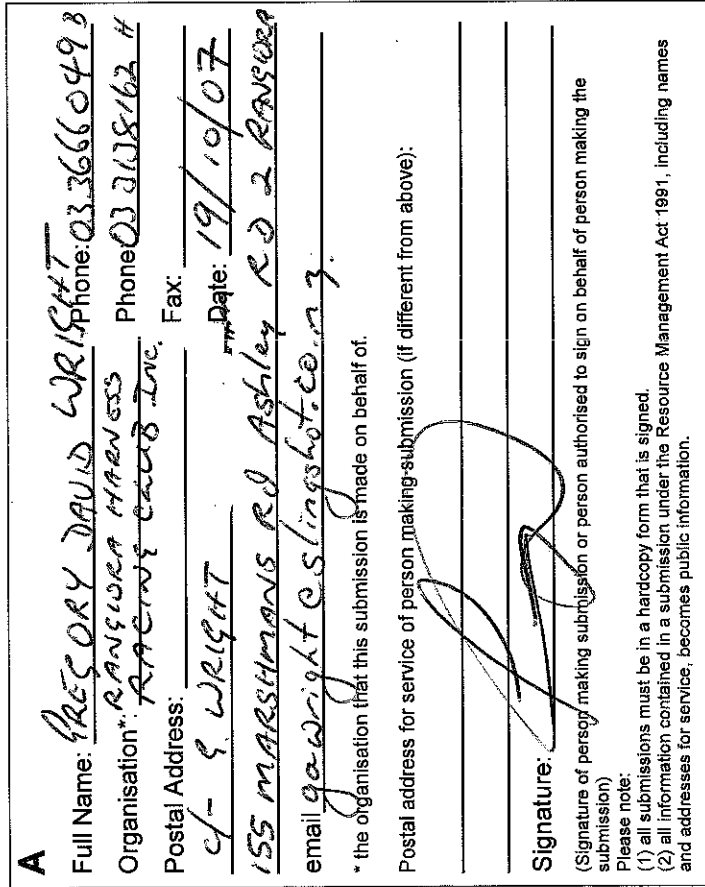 A
Full Name: GREGORY DAVID WRIGHT Phone: 03 3666049 B
Organisation*: RANGIORA HARNESS RACING CLUB Inc. Phone 03 3128162 H
Postal Address: Fax:
c/- G WRIGHT Date: 19/10/07
155 MARSHMANS RD Ashley RD 2 RANGIORA
email gawright@slingshot.co.nz.
* the organisation that this submission is made on behalf of.
Postal address for service of person making submission (if different from above):
Signature:
(Signature of person making submission or person authorised to sign on behalf of person making the
submission)
Please note:
(1) all submissions must be in a hardcopy form that is signed.
(2) all information contained in a submission under the Resource Management Act 1991, including names
and addresses for service, becomes public information.